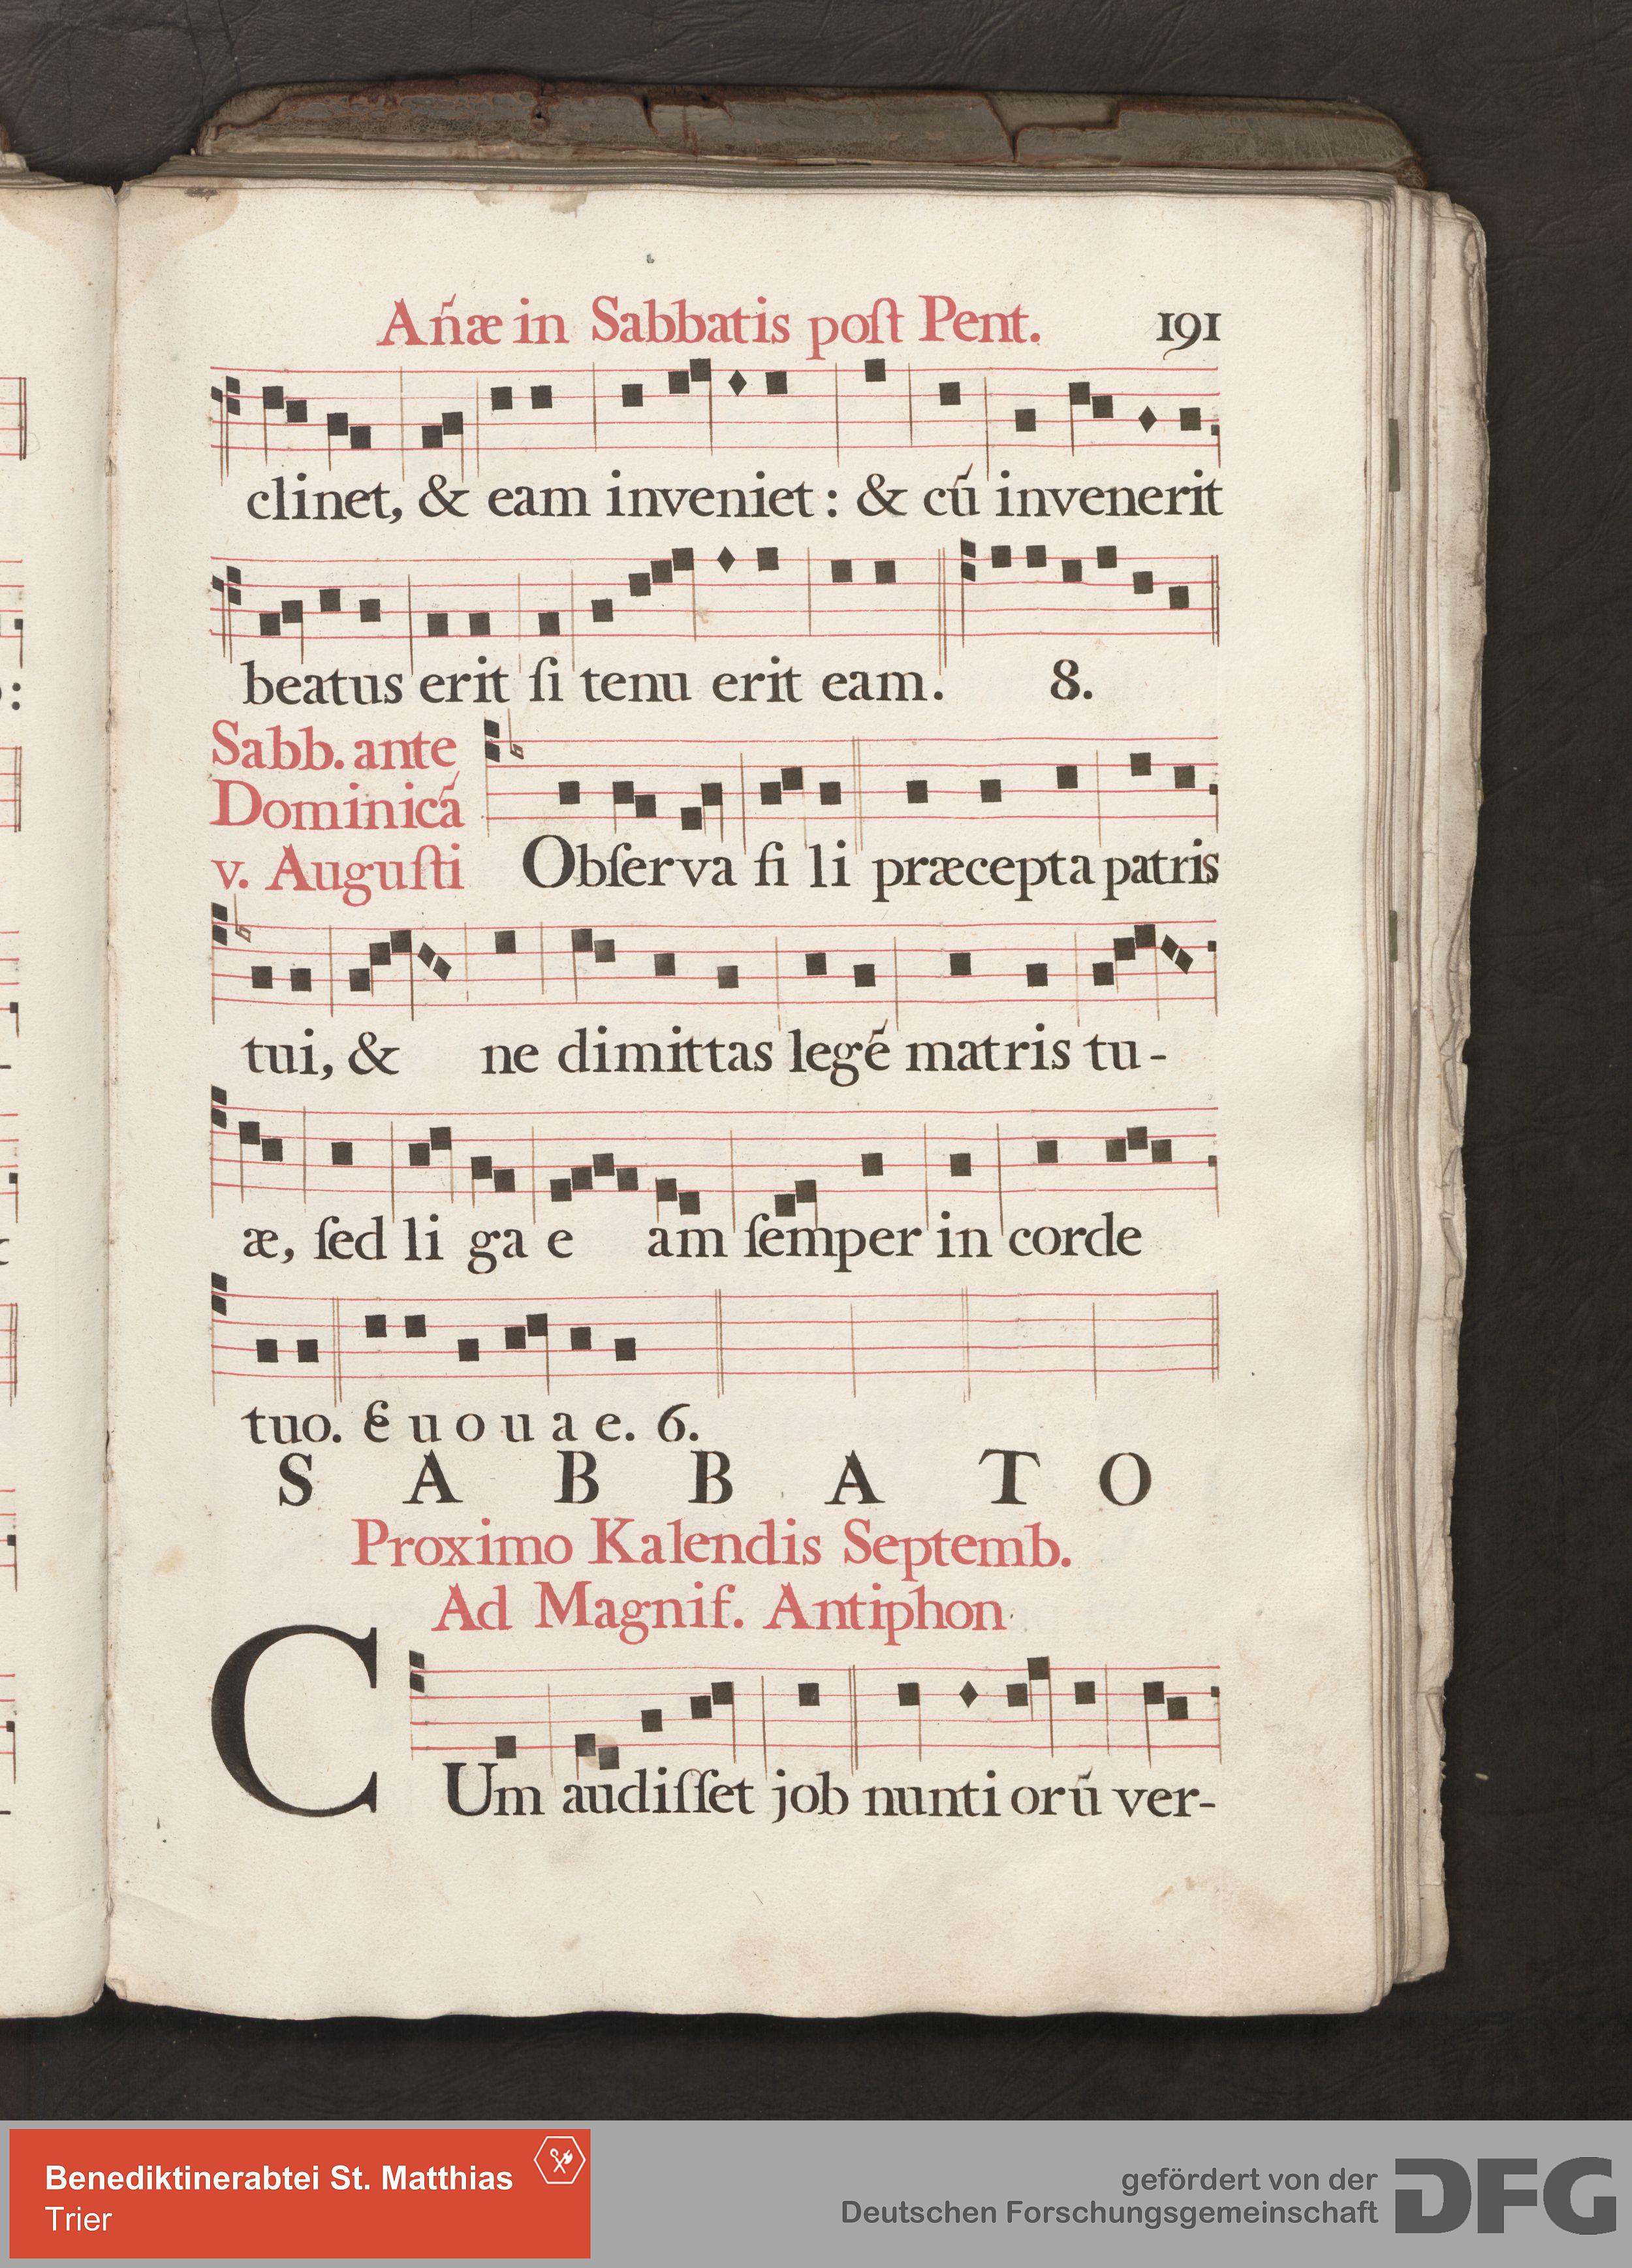 Añæ in Sabbatis poſt Pent. 191
clinet, & eam inveniet : & cū invenerit
beatus erit ſi tenu erit eam. 8.
Sabb. ante
Dominicā
v. Auguſti
Obſerva fi li præcepta patris
tui, & ne dimittas legē matris tu-
æ, ſed li ga e am ſemper in corde
tuo. E u o u a e. 6.
S A B B A T O
Proximo Kalendis Septemb.
Ad Magnif. Antiphon
CUm audiſſet job nunti orū ver-
Benediktinerabtei St. Matthias
Trier
gefördert von der
Deutschen Forschungsgemeinschaft
DFG